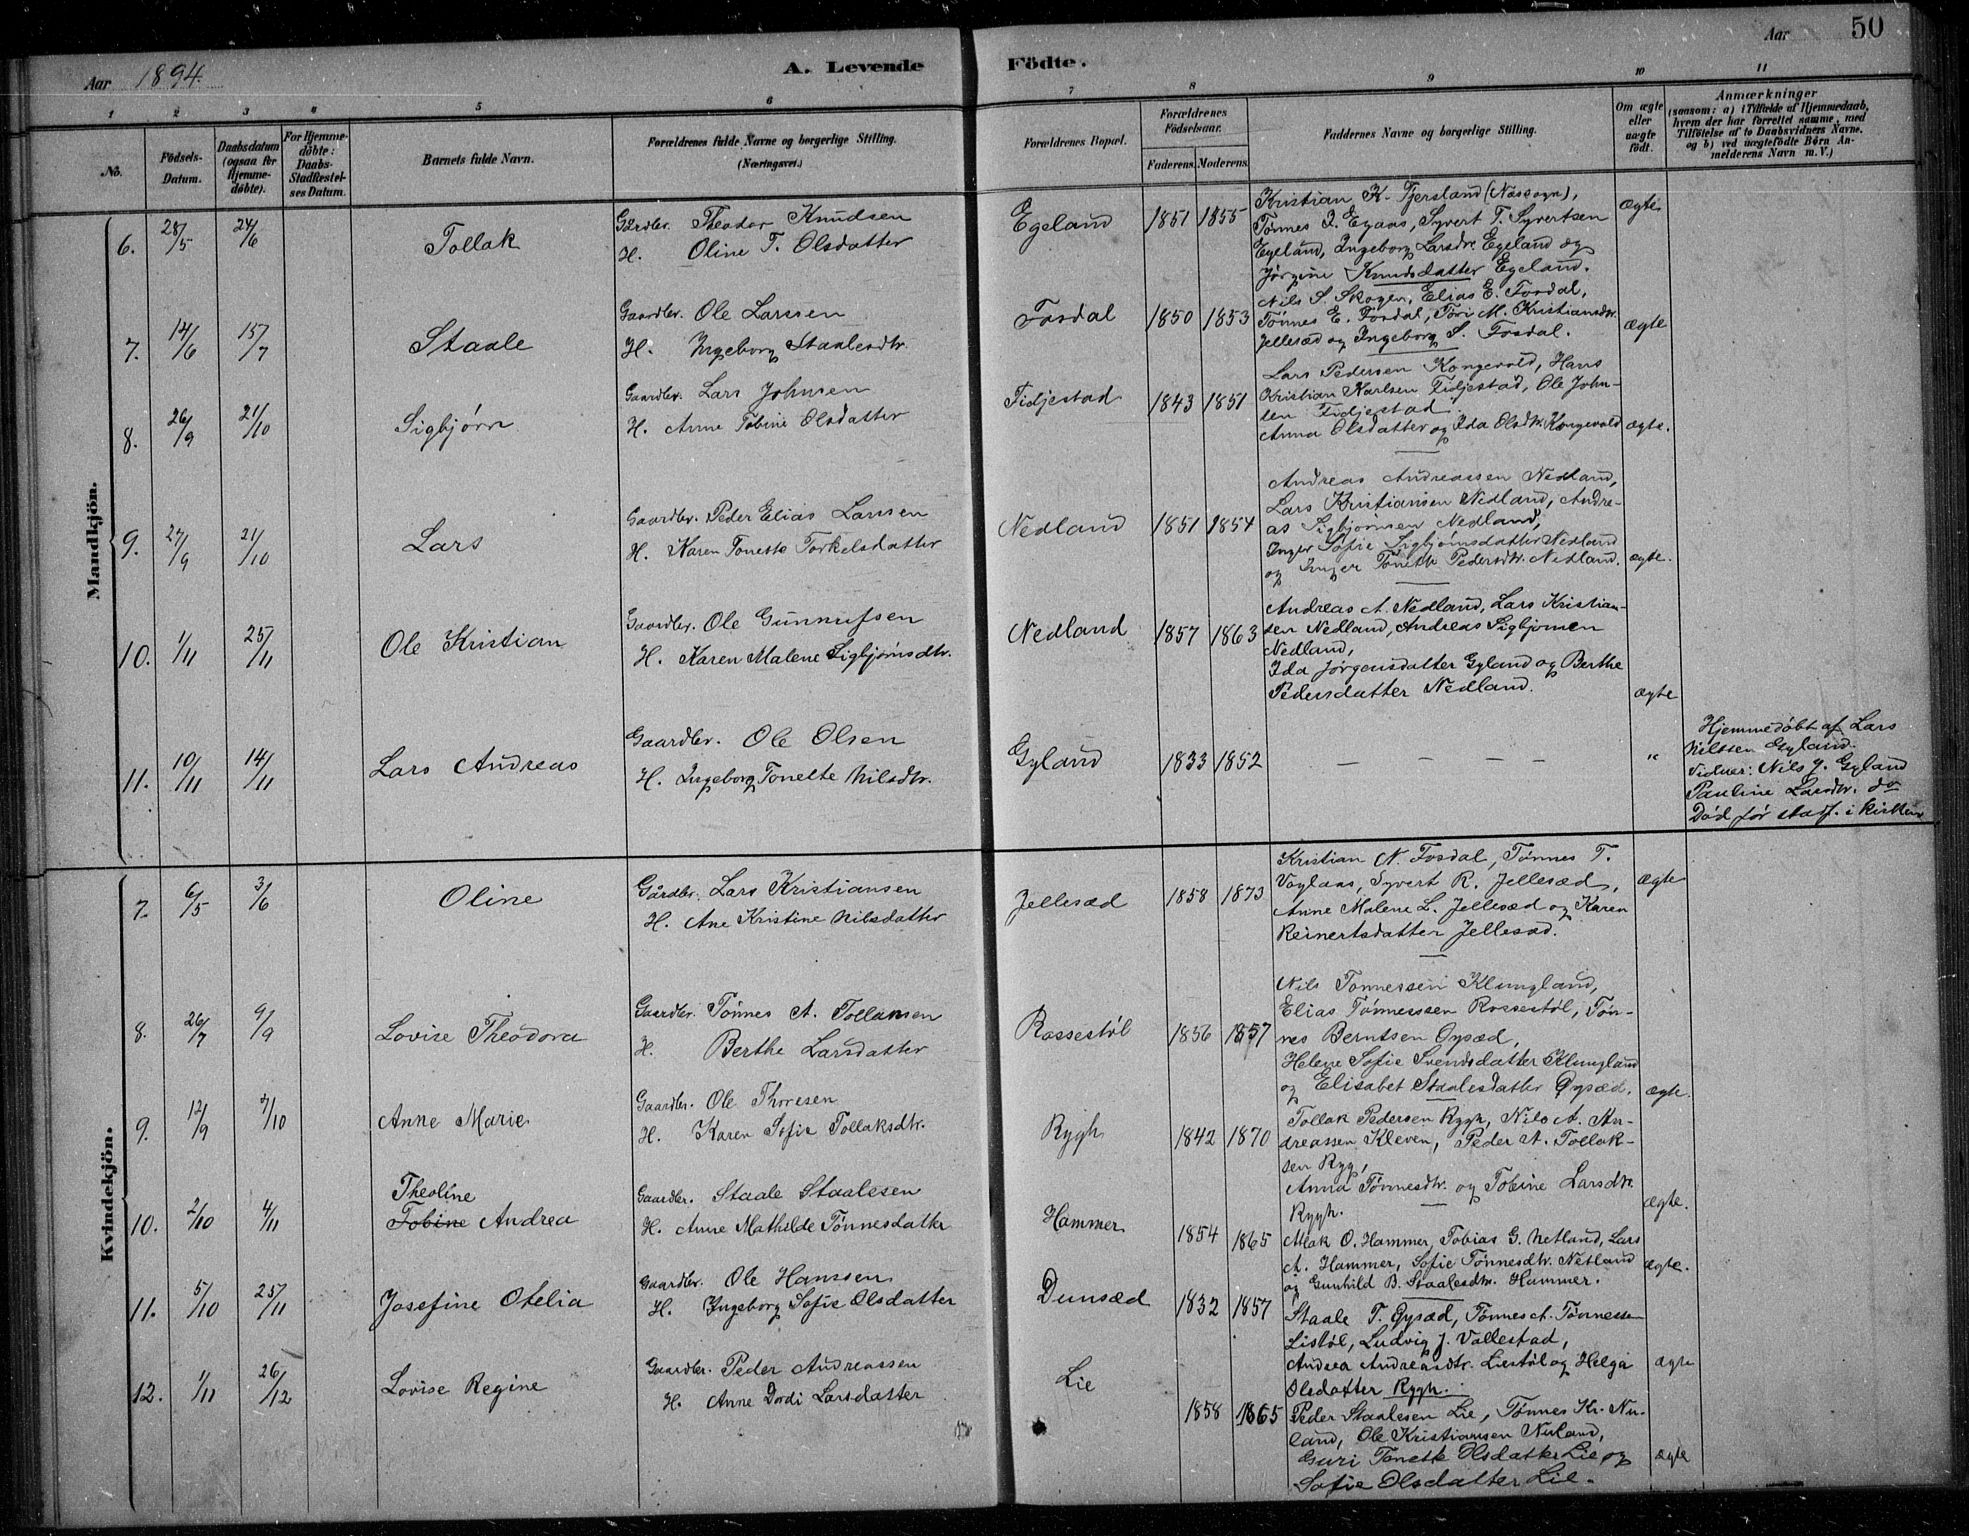 Aar 1894. A. Levende Födte. Aar 50
1 2 3 4 5 6 7 8 9 10 11
No.
Födsels-Datum.
Daabsdatum (ogsaa for Hjemmedöbte).
For Hjemmedöbte: Daabs-Stadfestelses Datum.
Barnets fulde Navn.
Forældrenes fulde Navne og borgerlige Stilling.
(Næringsvei.)
Forældrenes Bopæl.
Forældrenes Födselsaar.
Faderens. Moderens.
Faddernes Navne og borgerlige Stilling.
Om ægte eller uægte födt.
Anmærkninger
(saasom: a) i Tilfælde af Hjemmedaab,
hvem der har forrettet samme, med
Tilföielse af to Daabsvidners Navne,
og b) ved uægtefödte Börn Anmelderens Navn m. V.)
Mandkjön.
6. 28/5 24/6 Tollak
Gårdbr. Theodor Knudsen
H. Oline T. Olsdatter
Egeland 1851 1855
Kristian K. Tjersland (Næssogn),
Tønnes I. Egaas, Syvert T. Syvertsen
Egeland, Ingeborg Larsdtr. Egeland og
Jørgine Knudsdatter Egeland.
ægte
7. 14/6 15/7 Staale
Gaardbr. Ole Larssen
H. Ingeborg Staalesdtr.
Fosdal 1850 1853
Nils S. Skogen, Elias E. Fosdal,
Tønnes E. Fosdal, Tøri M. Kristiansdtr.
Jellesæd og Ingeborg S. Fosdal.
ægte
8. 26/9 21/10 Sigbjørn
Gaardbr. Lars Johnsen
H. Anne Tobine Olsdatter
Fidjestad 1843 1851
Lars Pedersen Kongevold, Hans
Kristian Karlsen Fidjestad, Ole John-
sen Fidjestad
Anna Olsdatter og Ida Olsdtr. Kongevold
ægte.
9. 27/9 21/10 Lars
Gaardbr. Peder Elias Larssen
H. Karen Tonette Torkelsdatter
Nedland 1851 1854
Andreas Andreassen Nedland,
Lars Kristiansen Nedland, Andre-
as Sigbjørnsen Nedland,
Inger Sofie Sigbjørnsdatter Nedland
og Inger Tonette Pedersdtr. Nedland.
ægte.
10. 1/11 25/11 Ole Kristian
Gaardbr. Ole Gunnufsen
H. Karen Malene Sigbjørnsdtr.
Nedland 1857 1863
Andreas A. Nedland, Lars Kristian-
sen Nedland, Andreas Sigbjørnsen
Nedland,
Ida Jørgensdatter Gyland og Berthe
Pedersdatter Nedland.
ægte
11. 10/11 14/11 Lars Andreas
Gaardbr. Ole Olsen
H. Ingeborg Tonette Nilsdtr.
Gyland 1833 1852
— — — — —
"
Hjemmedøbt af Lars
Nilssen Gyland.
Vidner: Nils J. Gyland
Pauline Larsdtr. do
Død før stadf. i kirken
Kvindekjön.
7. 6/5 3/6 Oline
Gårdbr. Lars Kristiansen
H. Ane Kristine Nilsdatter
Jellesæd 1858 1873
Kristian N. Fosdal, Tønnes T.
Voglaas, Syvert R. Jellesæd,
Anne Malene L. Jellesæd og Karen
Reinertsdatter Jellesæd.
ægte
8. 26/7 9/9 Lovise Theodora
Gaardbr. Tønnes A. Tollaksen
H. Berthe Larsdatter
Rossestøl 1856 1857
Nils Tønnessen Klungland,
Elias Tønnessen Rossestøl, Tøn-
nes Berntsen Øysæd,
Helene Sofie Svendsdatter Klungland
og Elisabet Staalesdatter Øysæd.
ægte.
9. 12/9 7/10 Anne Marie
Gaardbr. Ole Thoresen
H. Karen Sofie Tollaksdtr.
Rygh 1842 1870
Tollak Pedersen Rygh, Nils A. An-
dreassen Kleven, Peder A. Tollak-
sen Ryg,
Anna Tønnesdtr. og Tobine Larsdtr.
Rygh.
ægte.
10. 2/10 4/11 Theoline
Tobine Andrea
Gaardbr. Staale Staalesen
H. Anne Mathilde Tønnesdatter
Hammer 1854 1865
Aslak O. Hammer, Tobias G. Netland, Lars
A. Hammer, Sofie Tønnesdtr. Netland
og Gunhild B. Staalesdtr. Hammer.
ægte.
11. 5/10 25/11 Josefine Otelia
Gaardbr. Ole Hanssen
H. Ingeborg Sofie Olsdatter
Dunsæd 1832 1857
Staale T. Øysæd, Tønnes A. Tønnessen
Listøl, Ludvig J. Vallestad,
Andrea Andreasdtr. Liestøl og Helga
Olsdatter Rygh.
ægte
12. 1/11 26/12 Lovise Regine
Gaardbr. Peder Andreassen
H. Anne Dordi Larsdatter
Lie 1858 1865
Peder Staalesen Lie, Tønnes Kr. Nu-
land, Ole Kristiansen Nuland,
Guri Tonette Olsdatter Lie og
Sofie Olsdatter Lie.
ægte